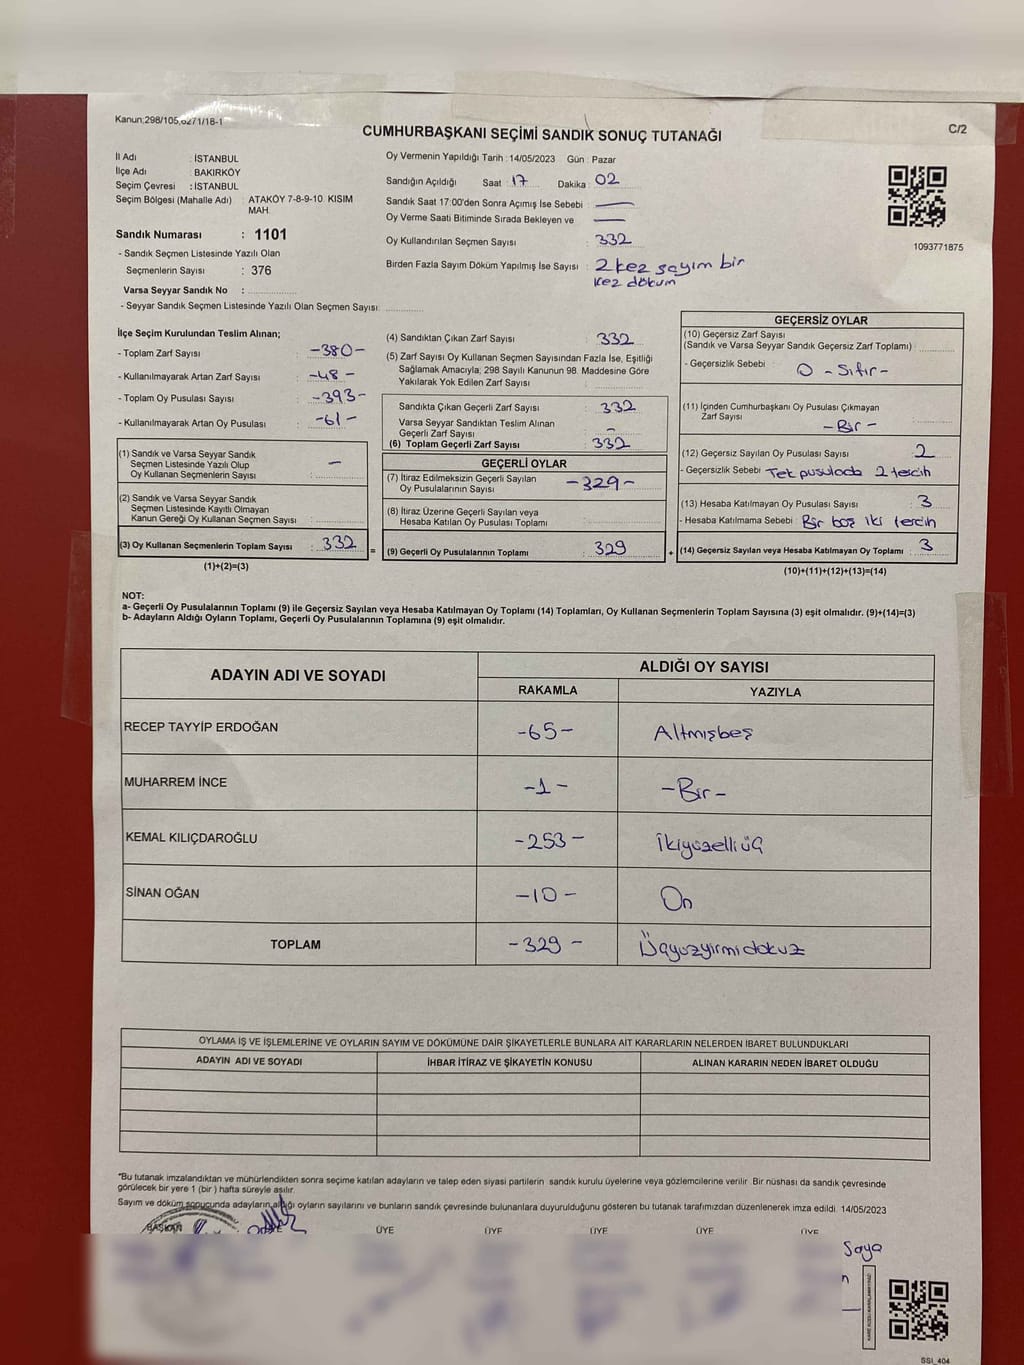 Kanun:298/105,6271/18-1
CUMHURBAŞKANI SEÇİMİ SANDIK SONUÇ TUTANAĞI
C/2
İl Adı : İSTANBUL
İlçe Adı : BAKIRKÖY
Seçim Çevresi : İSTANBUL
Seçim Bölgesi (Mahalle Adı) : ATAKÖY 7-8-9-10. KISIM
MAH.
Sandık Numarası : 1101
- Sandık Seçmen Listesinde Yazılı Olan
Seçmenlerin Sayısı : 376
Varsa Seyyar Sandık No :
- Seyyar Sandık Seçmen Listesinde Yazılı Olan Seçmen Sayısı:
Oy Vermenin Yapıldığı Tarih : 14/05/2023 Gün : Pazar
Sandığın Açıldığı Saat : 17 Dakika : 02
Sandık Saat 17:00'den Sonra Açımış İse Sebebi : —
Oy Verme Saati Bitiminde Sırada Bekleyen ve —
Oy Kullandırılan Seçmen Sayısı : 332
Birden Fazla Sayım Döküm Yapılmış İse Sayısı : 2 kez sayım bir
kez döküm
1093771875
İlçe Seçim Kurulundan Teslim Alınan;
- Toplam Zarf Sayısı : -380-
- Kullanılmayarak Artan Zarf Sayısı : -48-
- Toplam Oy Pusulası Sayısı : -393-
- Kullanılmayarak Artan Oy Pusulası : -61-
(1) Sandık ve Varsa Seyyar Sandık
Seçmen Listesinde Yazılı Olup
Oy Kullanan Seçmenlerin Sayısı : —
(2) Sandık ve Varsa Seyyar Sandık
Seçmen Listesinde Kayıtlı Olmayan
Kanun Gereği Oy Kullanan Seçmen Sayısı :
(3) Oy Kullanan Seçmenlerin Toplam Sayısı : 332
(1)+(2)=(3)
(4) Sandıktan Çıkan Zarf Sayısı : 332
(5) Zarf Sayısı Oy Kullanan Seçmen Sayısından Fazla İse, Eşitliği
Sağlamak Amacıyla; 298 Sayılı Kanunun 98. Maddesine Göre
Yakılarak Yok Edilen Zarf Sayısı :
Sandıkta Çıkan Geçerli Zarf Sayısı : 332
Varsa Seyyar Sandıktan Teslim Alınan
Geçerli Zarf Sayısı : -
(6) Toplam Geçerli Zarf Sayısı : 332
GEÇERLİ OYLAR
(7) İtiraz Edilmeksizin Geçerli Sayılan
Oy Pusulalarının Sayısı : -329-
(8) İtiraz Üzerine Geçerli Sayılan veya
Hesaba Katılan Oy Pusulası Toplamı :
= (9) Geçerli Oy Pusulalarının Toplamı : 329
GEÇERSİZ OYLAR
(10) Geçersiz Zarf Sayısı
(Sandık ve Varsa Seyyar Sandık Geçersiz Zarf Toplamı) :
- Geçersizlik Sebebi : 0 - Sıfır -
(11) İçinden Cumhurbaşkanı Oy Pusulası Çıkmayan
Zarf Sayısı : - Bir -
(12) Geçersiz Sayılan Oy Pusulası Sayısı : 2
- Geçersizlik Sebebi : Tek pusulada 2 tercih
(13) Hesaba Katılmayan Oy Pusulası Sayısı : 3
- Hesaba Katılmama Sebebi : Bir boş iki tercih
+ (14) Geçersiz Sayılan veya Hesaba Katılmayan Oy Toplamı : 3
(10)+(11)+(12)+(13)=(14)
NOT:
a- Geçerli Oy Pusulalarının Toplamı (9) ile Geçersiz Sayılan veya Hesaba Katılmayan Oy Toplamı (14) Toplamları, Oy Kullanan Seçmenlerin Toplam Sayısına (3) eşit olmalıdır. (9)+(14)=(3)
b- Adayların Aldığı Oyların Toplamı, Geçerli Oy Pusulalarının Toplamına (9) eşit olmalıdır.
ADAYIN ADI VE SOYADI ALDIĞI OY SAYISI
RAKAMLA YAZIYLA
RECEP TAYYİP ERDOĞAN -65- Altmışbeş
MUHARREM İNCE -1- -Bir-
KEMAL KILIÇDAROĞLU -253- İkiyüzelliüç
SİNAN OĞAN -10- On
TOPLAM -329- Üçyüzyirmidokuz
OYLAMA İŞ VE İŞLEMLERİNE VE OYLARIN SAYIM VE DÖKÜMÜNE DAİR ŞİKAYETLERLE BUNLARA AİT KARARLARIN NELERDEN İBARET BULUNDUKLARI
ADAYIN ADI VE SOYADI İHBAR İTİRAZ VE ŞİKAYETİN KONUSU ALINAN KARARIN NEDEN İBARET OLDUĞU
*Bu tutanak imzalandıktan ve mühürlendikten sonra seçime katılan adayların ve talep eden siyasi partilerin sandık kurulu üyelerine veya gözlemcilerine verilir. Bir nüshası da sandık çevresinde
görülecek bir yere 1 (bir) hafta süreyle asılır.
Sayım ve döküm sonucunda adayların aldığı oyların sayılarını ve bunların sandık çevresinde bulunanlara duyurulduğunu gösteren bu tutanak tarafımızdan düzenlenerek imza edildi. 14/05/2023
BAŞKAN ÜYE ÜYE ÜYE ÜYE ÜYE
Saya
SSI_404